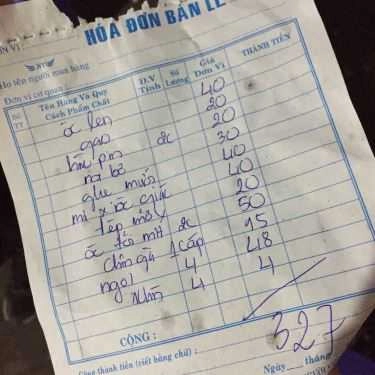 HÓA ĐƠN BÁN LẺ
ĐƠN VỊ
Họ tên người mua hàng
Đơn vị cơ quan
Số TT Tên Hàng Và Quy Cách Phẩm Chất Đ.V Tính Số Lượng Giá Đơn Vị THÀNH TIỀN
ốc len 40
gạo 20
20
na bể 2c 30
ghẹ muối 40
mì x ốc giác 40
tép mỡ 20
ốc tỏi MH 2c 50
chân gà 1 cáp 15
ngọt 4 48
khăn 4 4
CỘNG :
327
Cộng thành tiền (viết bằng chữ) :
Ngày tháng